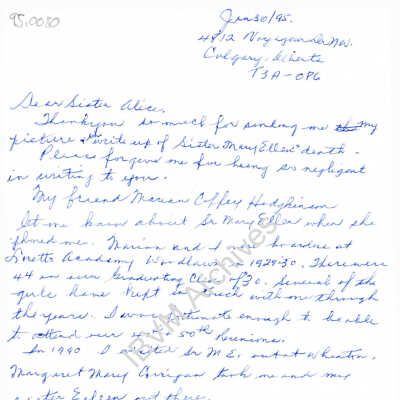 95.0030
Jan 30/95.
4812 Voyageur Dr. N.W.
Calgary, Alberta
T3A-0P6
Dear Sister Alice,
Thankyou so much for sending me my
picture & write up of Sister Mary Ellen's death.
Please forgive me for being so negligent
in writing to you.
My friend Marian Coffey Hodgkinson
let me know about Sr. Mary Ellen when she
phoned me. Marian and I were boarders at
Loretto Academy Woodlawn in 1929-30. There were
44 in our Graduating Class of 30. Several of the
girls have kept in touch with me through
the years. I was fortunate enough to be able
to attend our 50th Reunions.
In 1990 I visited Sr M.E. out at Wheaton.
Margaret Mary Corrigan took me and my
sister Eileen out there.
IBVM Archives